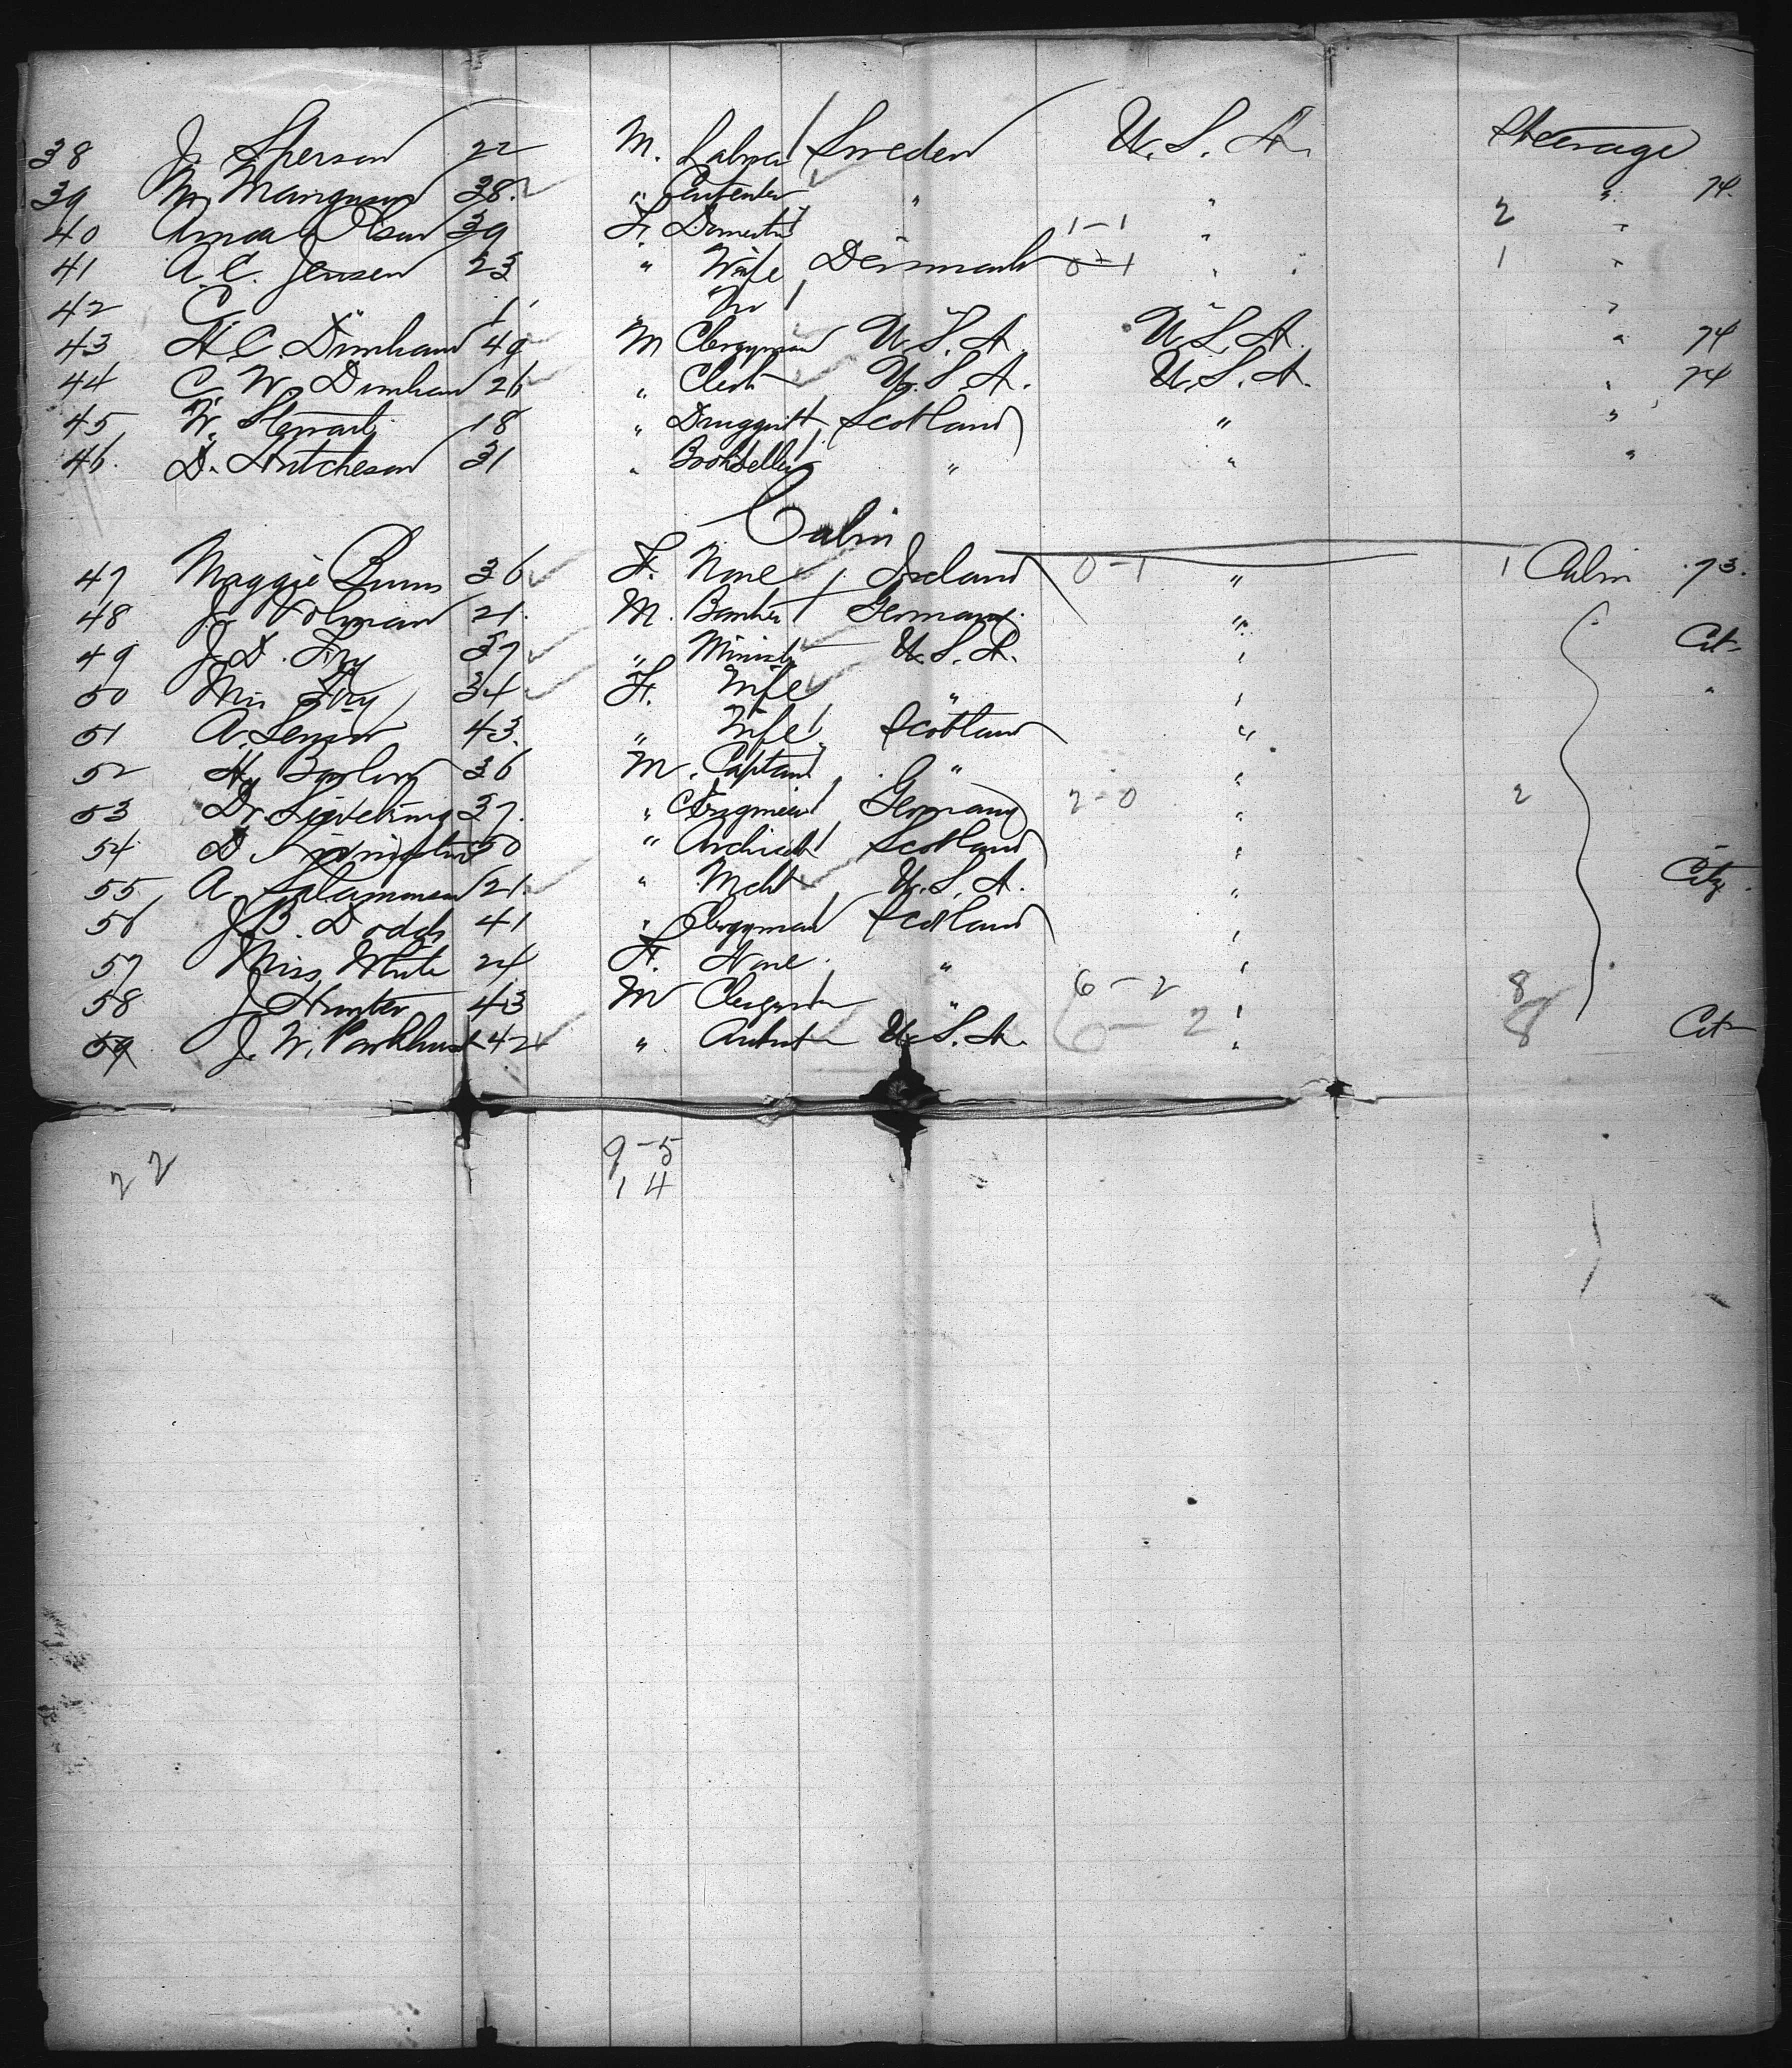 38 J. Sperson 22 M. Labrer Sweden U.S.A. Steerage
39 M. Mangusus 38 " Carpenter " " " 74.
40 Anna Olson 39 F. Domestic " 1-1 " 2 "
41 A.C. Jensen 23 " Wife Denmark 0-1 " 1 "
42 C. " 1 " No " " "
43 H.C. Dunham 49 M Clergyman U.S.A. U.S.A. " 74
44 C.W. Dunham 26 " Clerk U.S.A. U.S.A. " 74
45 W. Stewart 18 " Druggist Scotland " "
46. D. Hutcheson 31 " Bookseller " " "
Cabin
47 Maggie Burns 36 F. None Ireland 0-1 " 1 Cabin 73.
48 J. Holman 21. M. Banker Germany. "
49 J.D. Fry 37 " Minister U.S.A. " Cit
50 Mrs Fry 34 F. Wife " " "
51 A. 43. " Wife Scotland "
52 Hy 36 M. Captain " "
53 Dr. Sieveking 37. " Germany 2-0 " 2
54 D. 50 " Architect Scotland "
55 A. 21. " Mcht U.S.A. " City.
56 J.B. Dodds 41 " Clergyman Scotland "
57 Miss White 24 F. None. " "
58 J. Hunter 43 M Clergym " 6-2 " 8
59 J.W. Parkhurst 42 " Artist U.S.A. 6-2 " 8 Cit
22 9-5
14